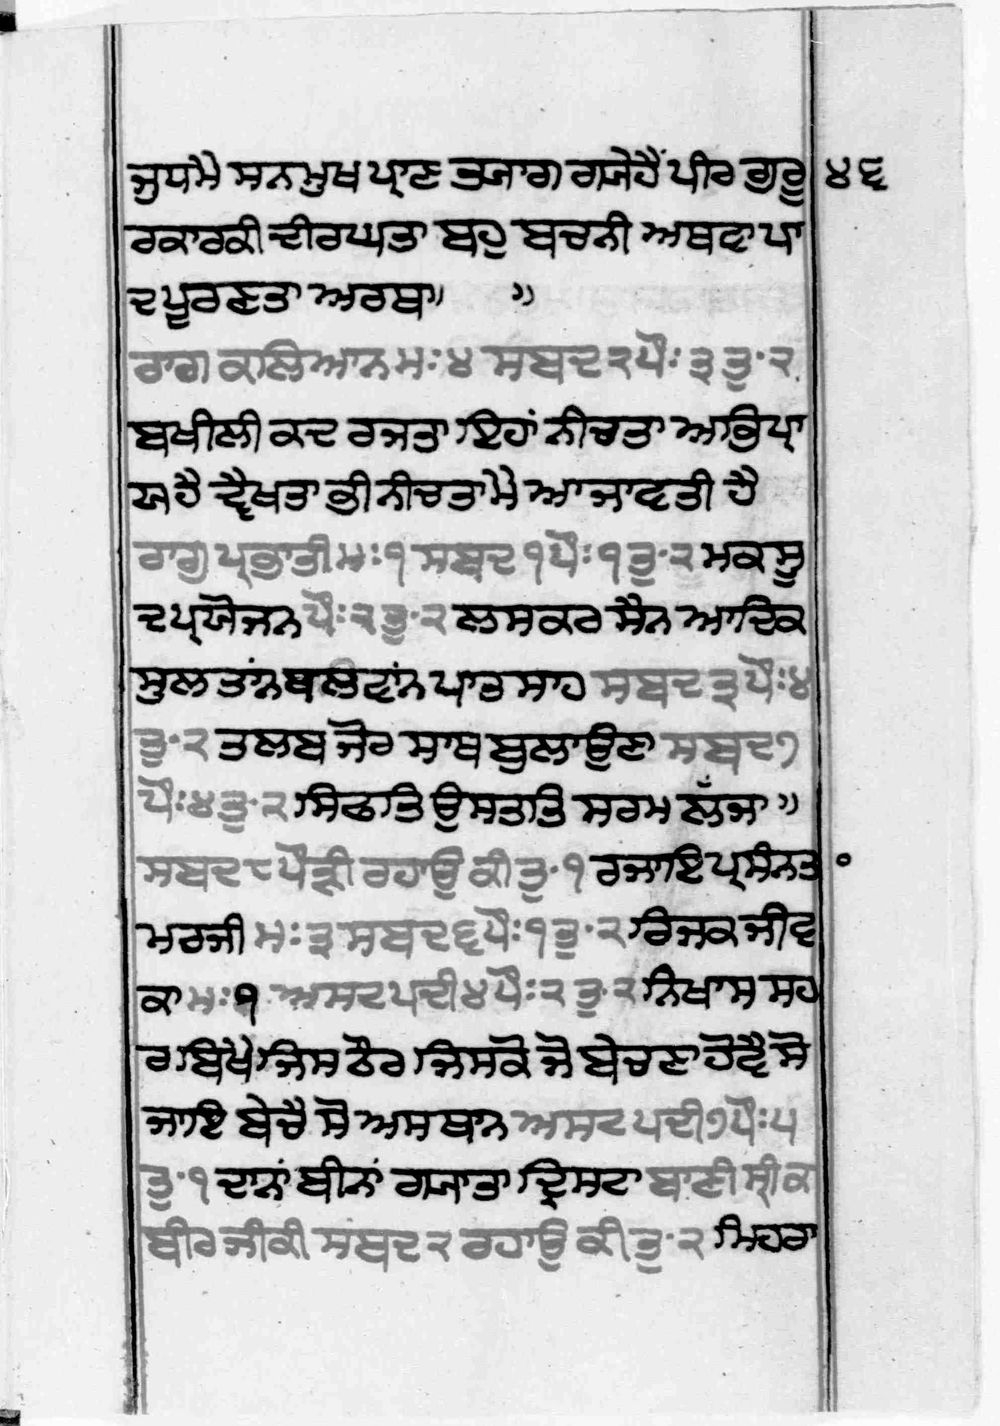 ਜੁਧਮੈ ਸਨਮੁਖ ਪ੍ਰਾਣ ਤ੍ਯਾਗ ਗਯੇਹੈਂ ਪੀਰ ਗੁਰੂ ੪੬
ਰਕਾਰਕੀ ਦੀਰਘਤਾ ਬਹੁ ਬਚਨੀ ਅਥਵਾ ਪਾ
ਦਪੂਰਣਤਾ ਅਰਥ॥ ॥
ਰਾਗ ਕਲਿਆਨ ਮਃ ੪ ਸਬਦ ੨ ਪੌਃ ੩ ਤੁ. ੨
ਬਖੀਲੀ ਕਦ ਰਜਤਾ ਇਹਾਂ ਨੀਚਤਾ ਅਭਿਪ੍ਰਾ
ਯ ਹੈ ਦ੍ਵੈਖਤਾ ਭੀ ਨੀਚਤਾਮੈ ਆ ਜਾਵਤੀ ਹੈ
ਰਾਗੁ ਪ੍ਰਭਾਤੀ ਮਃ ੧ ਸਬਦ ੧ ਪੌਃ ੧ ਤੁ. ੨ ਮਕਸੂ
ਦ ਪ੍ਰਯੋਜਨ ਪੌਃ ੨ ਤੁ. ੨ ਲਸਕਰ ਸੈਨ ਆਦਿਕ
ਸੁਲਤਾਂਨ ਬਲਵਾਂਨ ਪਾਤਸਾਹ ਸਬਦ ੩ ਪੌਃ ੪
ਤੁ. ੨ ਤਲਬ ਜੋਰ ਸਾਥ ਬੁਲਾਉਣਾ ਸਬਦ ੭
ਪੌਃ ੪ ਤੁ. ੨ ਸਿਫਤਿ ਉਸਤਤਿ ਸਰਮ ਲੱਜਾ॥
ਸਬਦ ੮ ਪੌੜੀ ਰਹਾਉ ਕੀ ਤੁ. ੧ ਰਜਾਇ ਪ੍ਰਸੰਨਤਾ
ਮਰਜੀ ਮਃ ੩ ਸਬਦ ੬ ਪੌਃ ੧ ਤੁ. ੨ ਰਿਜਕ ਜੀਵ
ਕਾ ਮਃ ੧ ਅਸਟਪਦੀ ੪ ਪੌਃ ੨ ਤੁ. ੨ ਨਿਖਾਸ ਸਹ
ਰ ਬਿਖੇ ਜਿਸ ਠੌਰ ਜਿਸਕੋ ਜੋ ਬੇਚਣਾ ਹੋਵੈ ਸੋ
ਜਾਇ ਬੇਚੈ ਸੋ ਅਸਥਾਨ ਅਸਟਪਦੀ ੭ ਪੌਃ ੫
ਤੁ. ੧ ਦਾਨਾਂ ਬੀਨਾਂ ਗ੍ਯਾਤਾ ਦ੍ਰਿਸਟਾ ਬਾਣੀ ਸ੍ਰੀ ਕ
ਬੀਰ ਜੀਕੀ ਸਬਦ ੨ ਰਹਾਉ ਕੀ ਤੁ. ੨ ਮਿਹਰਾ